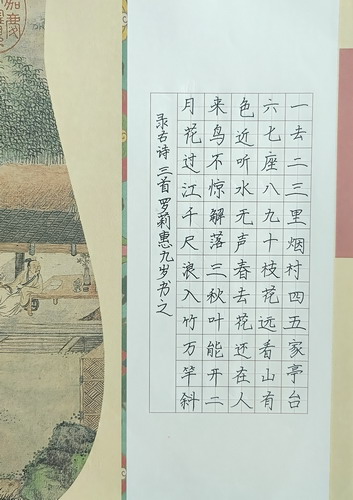 一去二三里烟村四五家亭台
六七座八九十枝花远看山有
色近听水无声春去花还在人
来鸟不惊解落三秋叶能开二
月花过江千尺浪入竹万竿斜
录古诗三首罗莉惠九岁书之